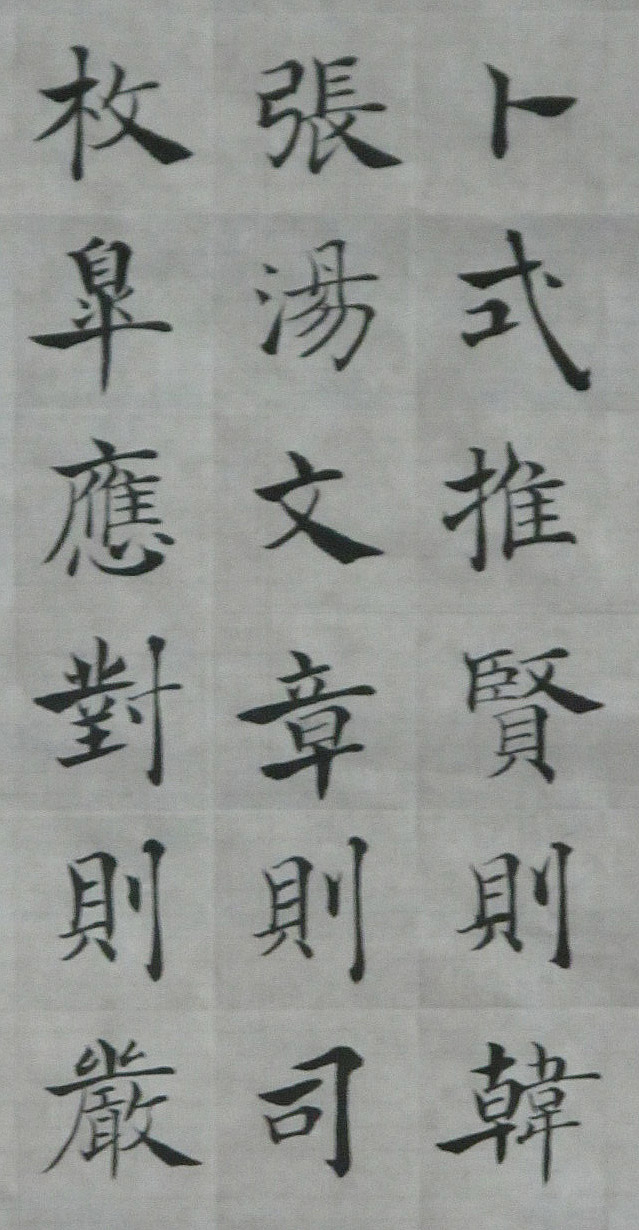 卜式推賢則韓
張湯文章則司
枚皐應對則嚴